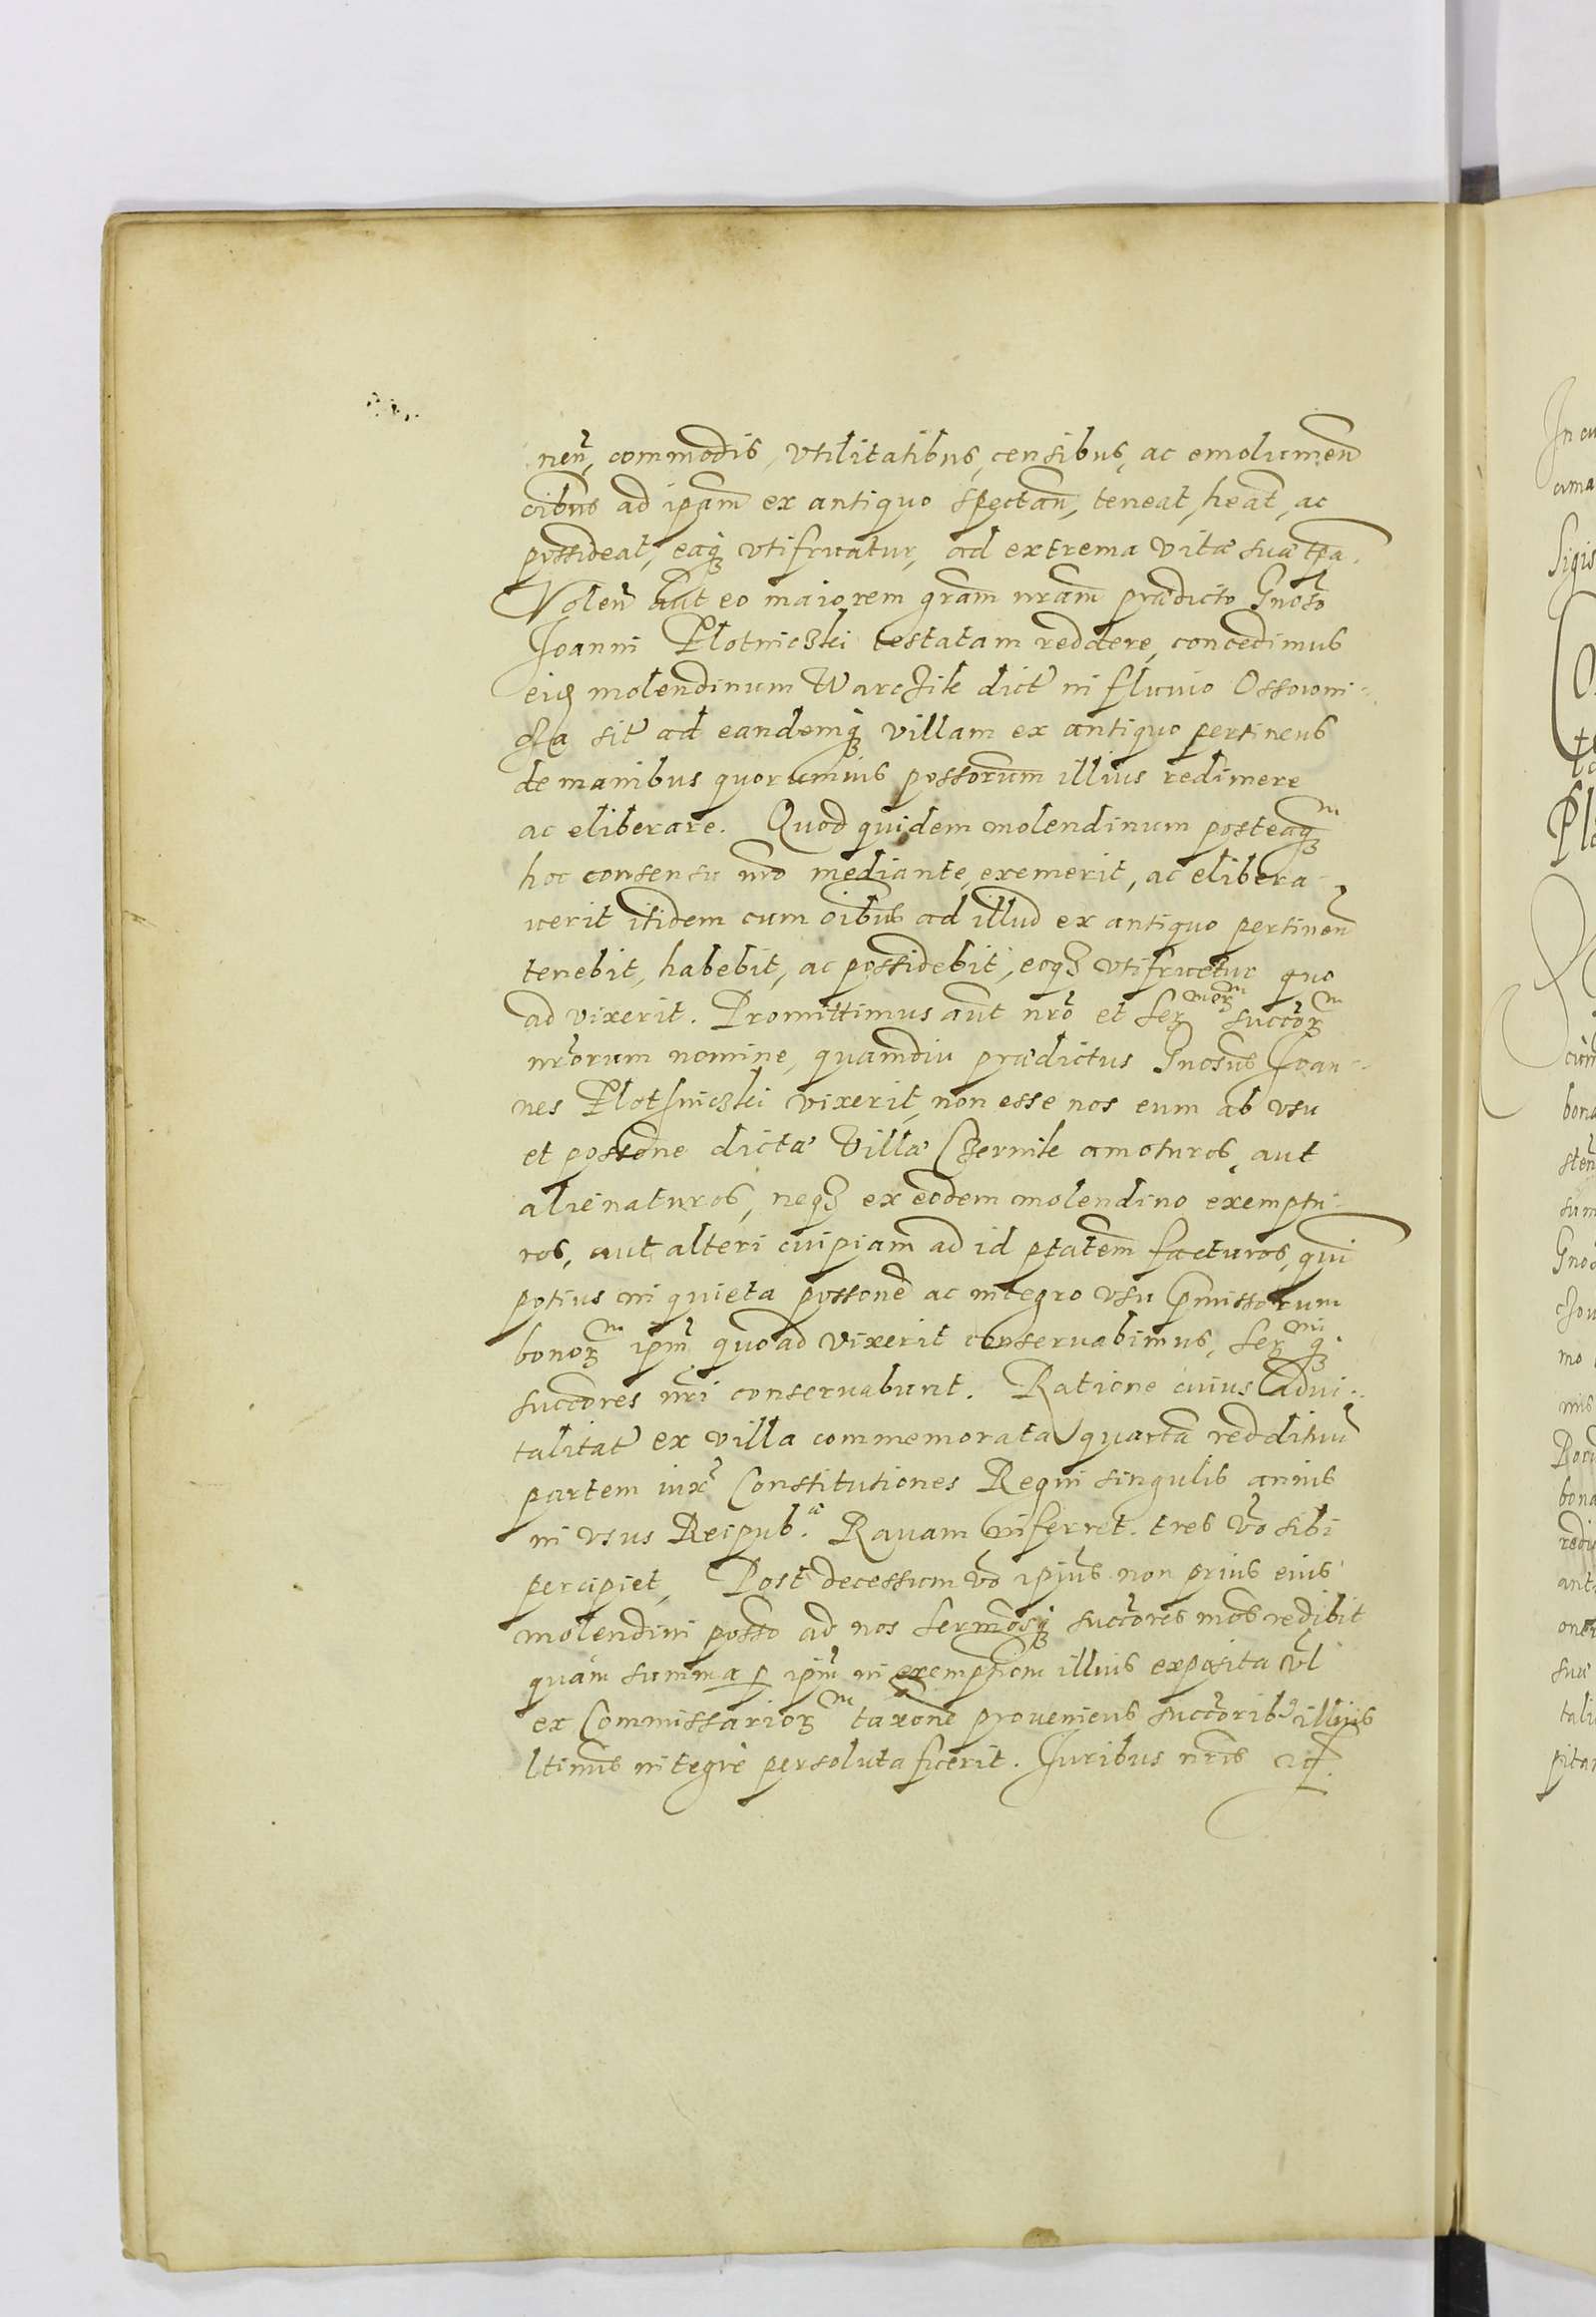 nen̄, commodis, vtilitatibus, censibus, ac emolumen̄
oībus ad ipsam ex antiquo spectan̄, teneat, heat, ac
possideat, eaq₃ vtifruatur, ad extrema vitæ suæ tpa.
Volen̄ aūt eo maiorem grām nrām prædicto Gnoso
Joanni Plotniczki testatam reddere, concedimus
eius molendinum Warczik dict̄ in fluvio Ossowni-
cza sit̄ ad eandemq₃ villam ex antiquo pertinens
de manibus quorumuis possorum illius redimere
ac eliberare. Quod quidem molendinum posteaq₃m
hoc consensu nro mediante, exemerit, ac elibera-
uerit itidem cum oībus ad illud ex antiquo pertinen̄
tenebit, habebit, ac possidebit, eoq₃ vtifruetur quo
ad vixerit. Promittimus aūt nrō et Ser₃morm succor₃m
nr̄orum nomine, quamdiu prædictus Gnosus Joan-
nes Plotniczki vixerit, non esse nos eum ab vsu
et possone dictæ Villæ Czernik amoturos, aut
alienaturos, neq₃ ex eodem molendino exemptu-
ros, aut alteri cuipiam ad id ptatem facturos, quin
potius in quieta possone ac integro vsu p̄missorum
bonor₃m ipm̄ quoad vixerit conseruabimus, Ser₃miq₃
succores nr̄i conseruabunt. Ratione cuius advi-
talitat̄ ex villa commemorata quartāreddituū
partem iux̄ Constitutiones Regni singulis annis
in vsus Reipub.æ Rauam inferret. tres vō sibi
percipiet, Post decessum vō ipius non prius eius
molendini posso ad nos Sermosq₃ succores nros redibit
quàm summa p ipm̄ in exemptionem illius exposita vl
ex Commissarior₃m taxone proueniens succorib₉ illius
ltimis integrè persoluta fuerit. Juribus nris etc.